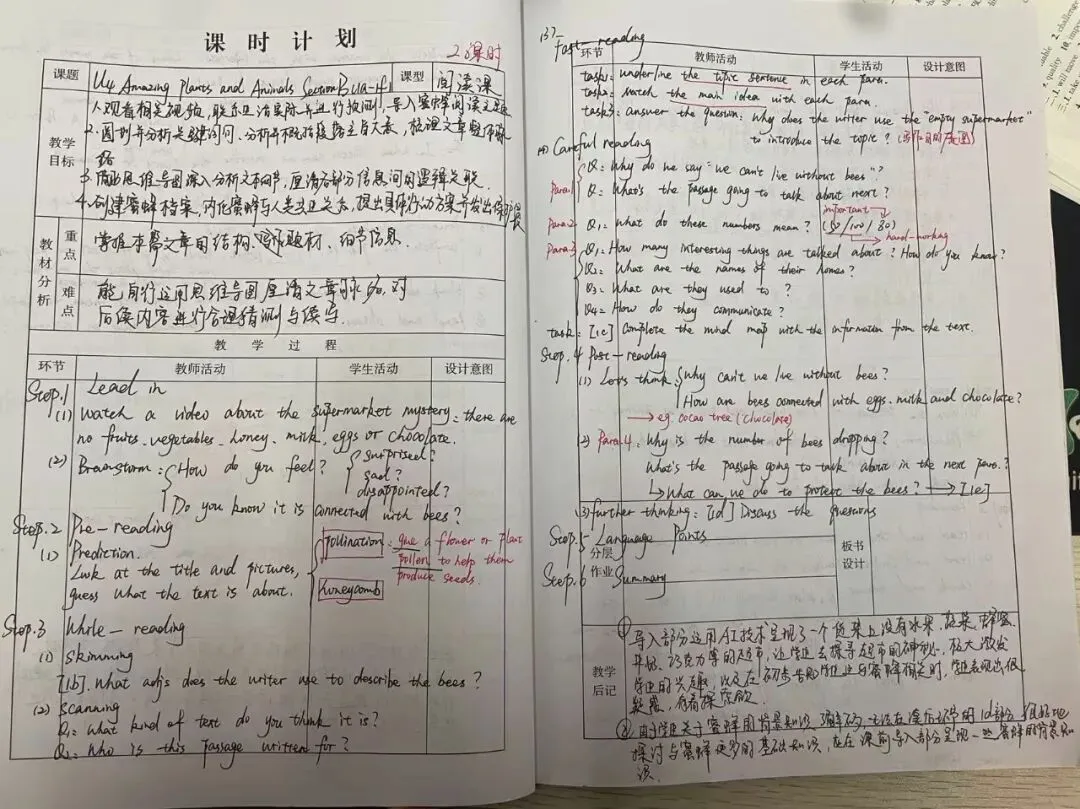 课时计划
2课时
课题
U4 Amazing Plants and Animals Section B 1a-1f
课型
阅读课
教学目标
1. 观看相关视频,联系生活实际并进行预测,导入蜜蜂阅读文章
2. 圈划并分析关键词句、分析并概括段落主旨大意,梳理文章整体
3. 借助思维导图深入分析文本细节,厘清各部分信息间的逻辑关联.
4. 创建蜜蜂档案,内化蜜蜂与人类共生关系,提出具体行动方案并发出
教材分析
重点
掌握本篇文章的结构、写作题材、细节信息.
难点
能自行运用思维导图厘清文章脉络,对
后续内容进行合理猜测与续写.
教学过程
环节 教师活动 学生活动 设计意图
Step.1 Lead in
(1) Watch a video about the supermarket mystery: there are
no fruits. vegetables. honey. milk. eggs or chocolate.
(2) Brainstorm: How do you feel? surprised?
sad?
disappointed?
Do you know it is connected with bees?
Step.2 Pre-reading
(1) Prediction.
Look at the title and pictures,
guess what the text is about.
pollination: give a flower or plant
pollen to help them
produce seeds.
honeycomb
Step.3 While-reading
(1) skimming
[1b]. What adjs does the writer use to describe the bees?
(2) scanning
Q1: What kind of text do you think it is?
Q2: Who is this passage written for?
(3) Fast-reading
环节 教师活动 学生活动 设计意图
task1: underline the topic sentence in each para.
task2: match the main idea with each para.
task3: answer the question: Why does the writer use the "empty supermarket"
to introduce the topic?
(4) Careful reading
Para.1 Q1: Why do we say "we can't live without bees"?
Q2: What's the passage going to talk about next?
important
Para.2 Q1: What do these numbers mean? (50/100/80)
hard-working
Para.3 Q1: How many interesting things are talked about? How do you know?
Q2: What are the names of their homes?
Q3: What are they used to?
Q4: How do they communicate?
task: [1c] Complete the mind map with the information from the text.
Step.4 Post-reading
(1) Let's think: Why can't we live without bees?
How are bees connected with eggs. milk and chocolate?
→ eg. cocao tree (chocolate)
(2) Para.4: Why is the number of bees dropping?
What's the passage going to talk about in the next para.?
↳ What can we do to protect the bees? → [1e]
(3) Further thinking: [1d] Discuss the questions
Step.5 Language Points
分层作业
板书设计
Step.6 Summary
教学后记
① 导入部分运用AI技术呈现了一个货架上没有水果、蔬菜、蜂蜜、
牛奶、巧克力等的超市,让学生去探寻超市的神秘,极大激发
学生的兴趣,以及在初步告知学生这与蜜蜂相关时,学生表现出很
疑惑,有着探索欲
② 由于学生关于蜜蜂的背景知识
探讨与蜜蜂更多的基础知识,应在课前导入部分呈现一些蜜蜂的背景知
识.